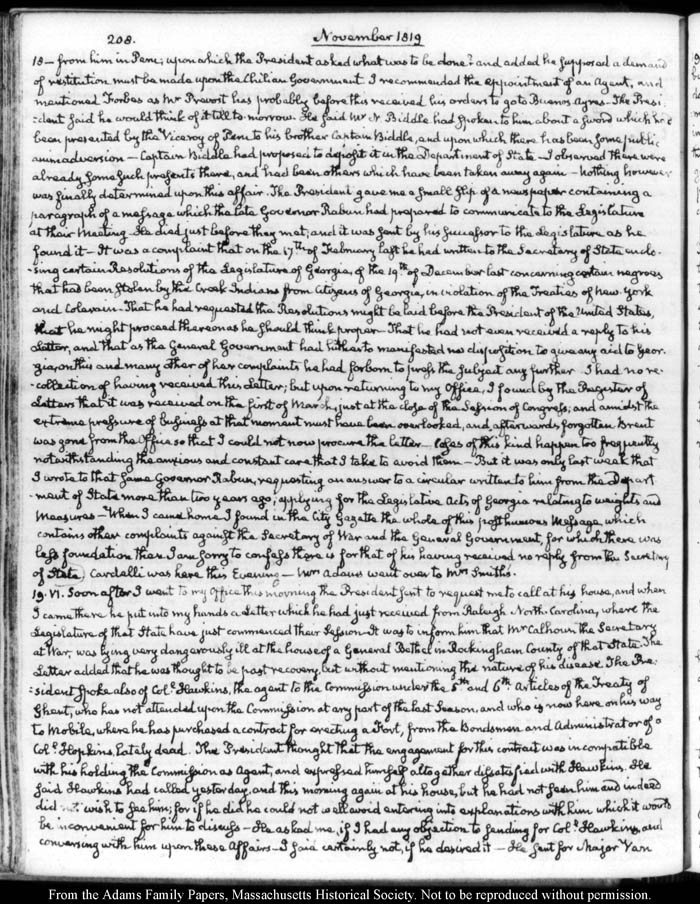 208.
November 1819
18 — from him in Peru; upon which the President asked what was to be done? and added he supposed a demand
of restitution must be made upon the Chilian Government. I recommended the appointment of an Agent, and
mentioned Forbes as Mr Prevost has probably before this received his orders to go to Buenos Ayres — The Presi-
-dent said he would think of it till to-morrow. He said Mr N. Biddle had spoken to him about a sword which had
been presented by the Viceroy of Peru to his brother Captain Biddle, and upon which there has been some public
animadversion — Captain Biddle had proposed to deposit it in the Department of State — I observed there were
already some such presents there, and had been others which have been taken away again — Nothing however
was finally determined upon this affair. The President gave me a small slip of a newspaper containing a
paragraph of a message which the late Governor Rabun had prepared to communicate to the Legislature
at their Meeting. He died just before they met; and it was sent by his successor to the Legislature as he
found it — It was a complaint that on the 17th of February last he had written to the Secretary of State enclo-
-sing certain Resolutions of the Legislature of Georgia, of the 19th of December last concerning certain negroes
that had been stolen by the Creek Indians from Citizens of Georgia, in violation of the Treaties of New York
and Colerain. That he had requested the Resolutions might be laid before the President of the United States,
that he might proceed thereon as he should think proper — That he had not even received a reply to his
Letter, and that as the General Government had hitherto manifested no disposition to give any aid to Geor-
gia, on this and many other of her complaints he had forborn to press the subject any further. I had no re-
-collection of having received this Letter; but upon returning to my Office, I found by the Register of
Letters that it was received on the first of March, just at the close of the Session of Congress; and amidst the
extreme pressure of business at that moment must have been overlooked, and afterwards forgotten. Brent
was gone from the Office so that I could not now procure the letter — Cases of this kind happen too frequently
notwithstanding the anxious and constant care that I take to avoid them — But it was only last week that
I wrote to that same Governor Rabun, requesting an answer to a circular written to him from the Depart
-ment of State more than two years ago; applying for the Legislative Acts of Georgia relating to weights and
Measures — When I came home I found in the City Gazette the whole of this posthumous Message, which
contains other complaints against the Secretary of War and the General Government, for which there was
less foundation than I am sorry to confess there is for that of his having received no reply from the Secretary
of State. Cardelli was here this Evening — Mrs Adams went over to Mrs Smith's.
19. VI. Soon after I went to my Office this morning the President sent to request me to call at his house, and when
I came there he put into my hands a Letter which he had just received from Raleigh North-Carolina, where the
Legislature of that State have just commenced their Session. It was to inform him that Mr Calhoun the Secretary
at War, was lying very dangerously ill at the house of a General Bethel in Rockingham County of that State. The
Letter added that he was thought to be past recovery, but without mentioning the nature of his disease. The Pre-
-sident spoke also of Coll. Hawkins, the agent to the Commission under the 5th and 6th Articles of the Treaty of
Ghent, who has not attended upon the Commission at any part of the last Season, and who is now here on his way
to Mobile, where he has purchased a contract for erecting a Fort, from the Bondsmen and Administrator of a
Coll. Hopkins lately dead. The President thought that the engagement for this contract was incompatible
with his holding the Commission as Agent, and expressed himself altogether dissatisfied with Hawkins. He
said Hawkins had called yesterday, and this morning again at his house, but he had not seen him and indeed
did not wish to see him; for if he did he could not well avoid entering into explanations with him which it would
be inconvenient for him to discuss — He asked me, if I had any objection to sending for Coll. Hawkins, and
conversing with him upon these Affairs — I said certainly not, if he desired it — He sent for Major Van
From the Adams Family Papers, Massachusetts Historical Society. Not to be reproduced without permission.